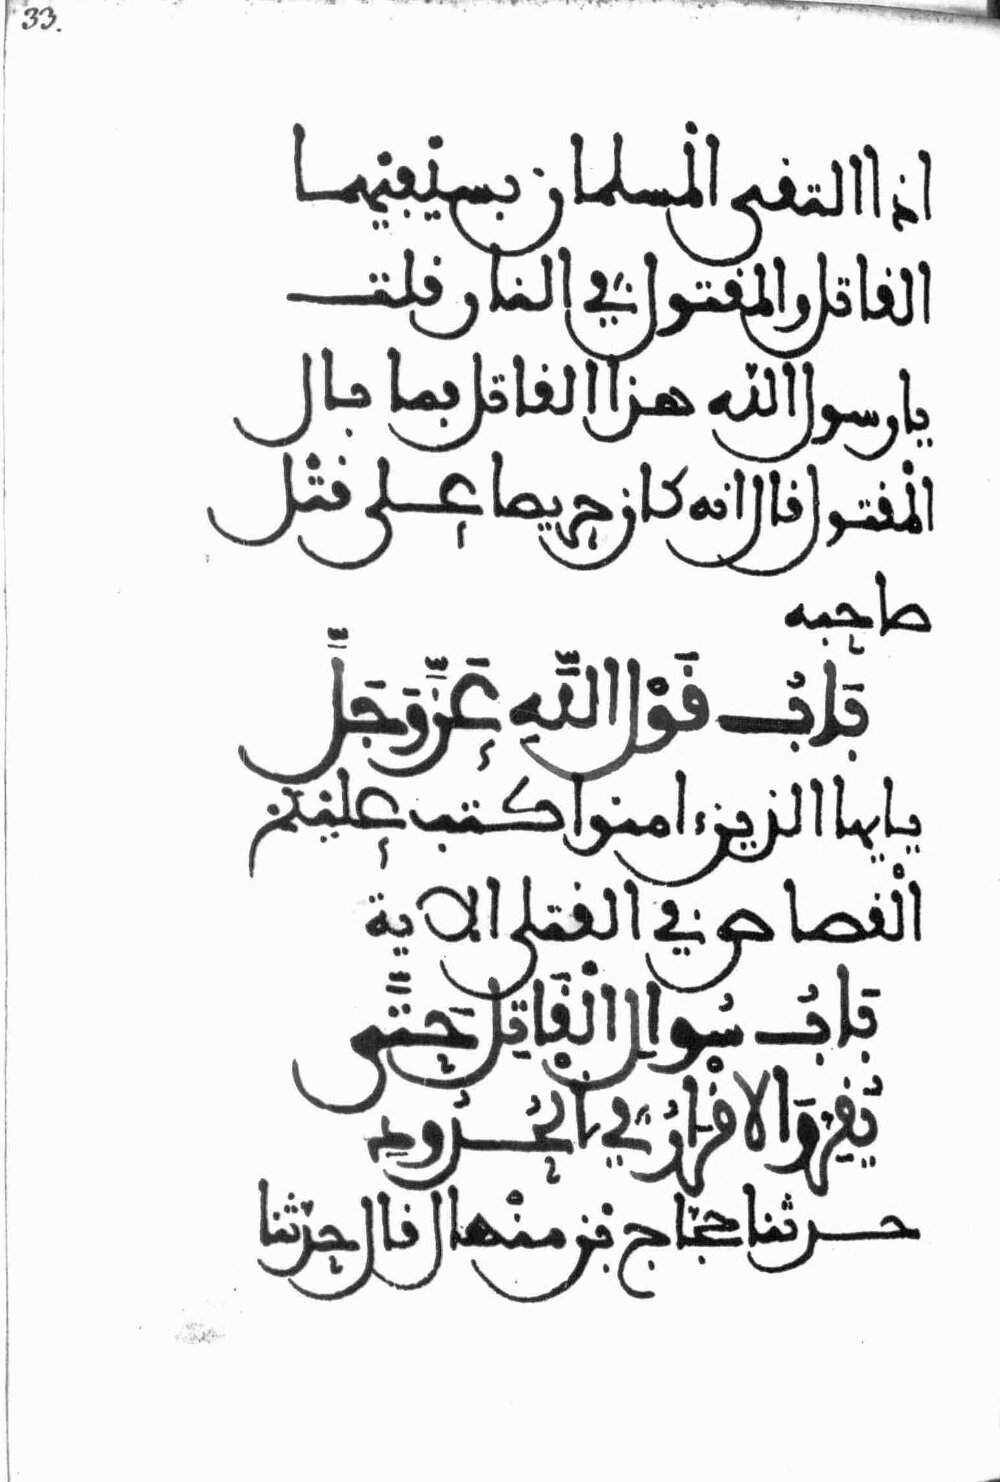 33.
اذا التقى المسلمان بسيفيهما
القاتل والمقتول في النار قلت
يا رسول الله هذا القاتل فما بال
المقتول قال انه كان حريصا على قتل
صاحبه
بَابُ قَوْلِ اللَّهِ عَزَّ وَجَلَّ
يا يها الذين ءامنوا كتب عليكم
القصاص في القتلى الاية
بَابُ سُوالِ الْقَاتِلِ حَتَّى
يُقِرَّ وَالاقْرَارُ فِي الْحُدُودِ
حدثنا حجّاج بن منْهال قال حدّثنا